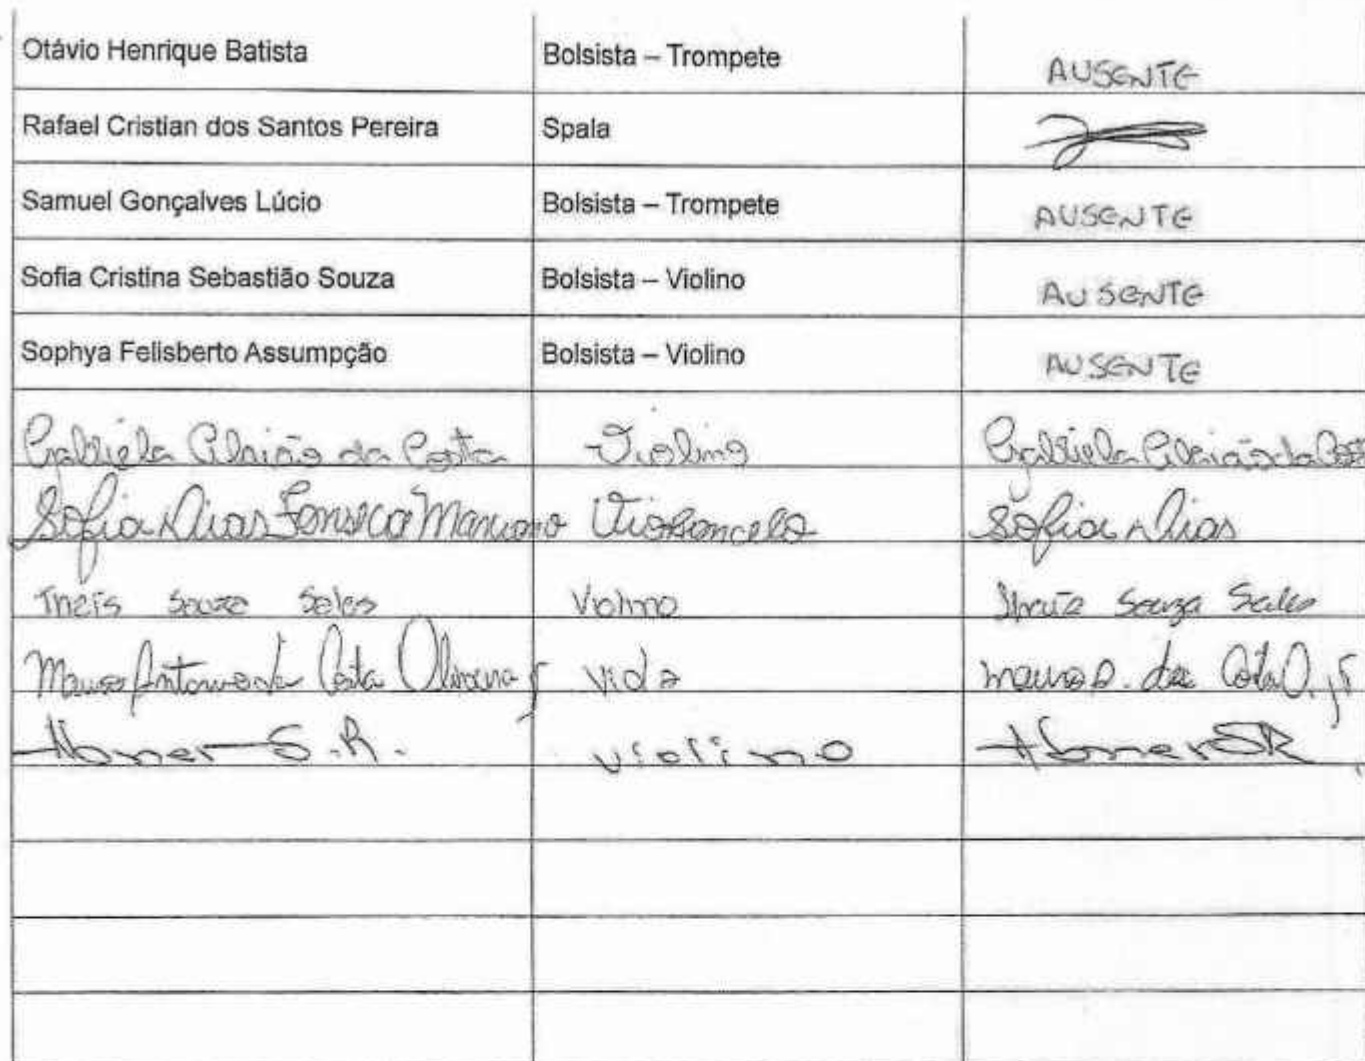 Otávio Henrique Batista Bolsista – Trompete AUSENTE
Rafael Cristian dos Santos Pereira Spala
Samuel Gonçalves Lúcio Bolsista – Trompete AUSENTE
Sofia Cristina Sebastião Souza Bolsista – Violino AUSENTE
Sophya Felisberto Assumpção Bolsista – Violino AUSENTE
Gabriela da Costa Violino Gabriela
Sofia Dias Fonseca Mariano Violoncelo Sofia Dias
Thaís Souza Sales Violino Thaís Souza Sales
Mauro Antonio da Costa Oliveira Jr Viola Mauro A. da Costa O. Jr
Abner S.R. violino Abner SR